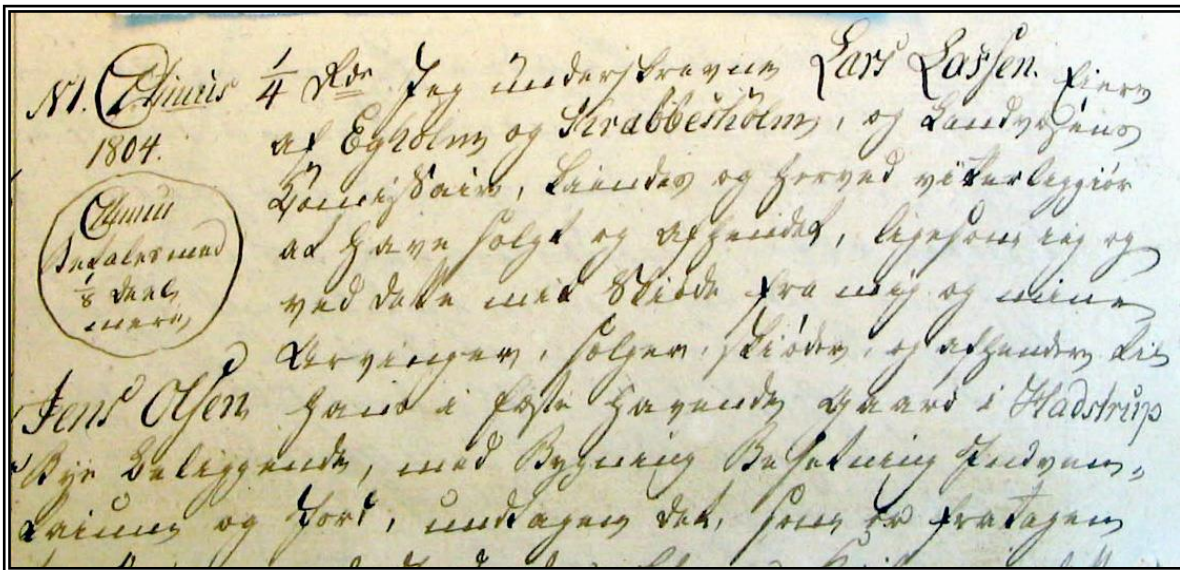 N1. Classis
1804.
Classis
Betales med
1/8 deel
mere,
1/4 Rdr Jeg underskrevne Lars Lassen. Eiere
af Egholm og Krabbesholm, og Landvæsens
Commissair, kiendes og herved vitterliggiør
at have solgt og afhendet, ligesom ieg og
ved dette mit Skiøde fra mig og mine
Arvinger, sælger, skiøder, og afhender til
Jens Olsen hans i fæste havende Gaard i Stadstrup
Bye beliggende, med Bygning Besætning Indven-
tarium og Jord, undtagen det, som er fratagen